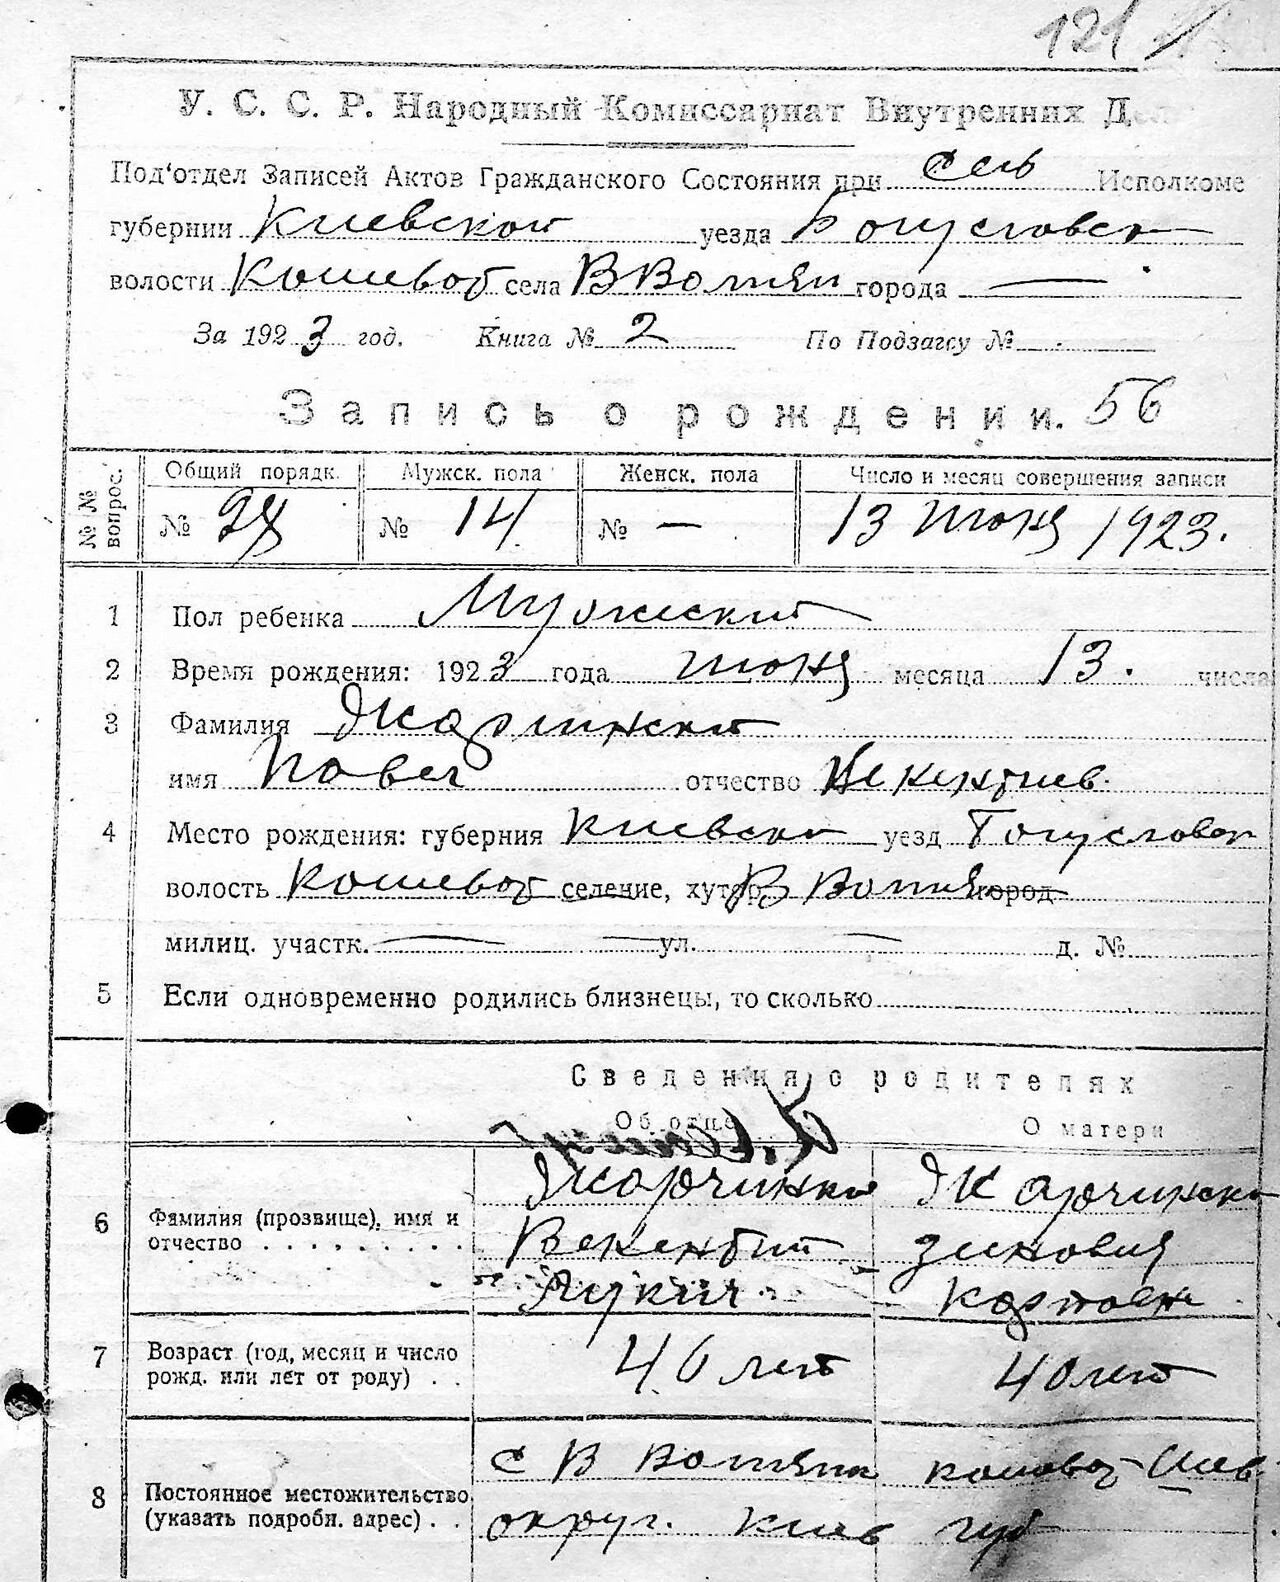 121
У. С. С. Р. Народный Комиссариат Внутренних Дел
Под‘отдел Записей Актов Гражданского Состояния при Сель Исполкоме
губернии Киевской уезда Богуславск
волости Кошеват села В Вотылів города —
За 1923 год. Книга № 2 По Подзагсу №
Запись о рождении. 56
№№ вопрос. Общий порядк. Мужск. пола Женск. пола Число и месяц совершения записи
№ № 14 № — 13 июня 1923.
1 Пол ребенка Мужеский
2 Время рождения: 1923 года июня месяца 13. числа
3 Фамилия
имя Павел отчество Векентиев.
4 Место рождения: губерния Киевска уезд Богуславск
волость Кошеват селение, хутор В город
милиц. участк. — — ул. — д. №
5 Если одновременно родились близнецы, то сколько
Сведения о родителях
Об отце О матери
6 Фамилия (прозвище), имя и отчество
Векентий Зиновия
Лукич
7 Возраст (год, месяц и число рожд. или лет от роду) . . 40 лет 40 лет
8 Постоянное местожительство (указать подробн. адрес) . . с В
округ. Киев губ